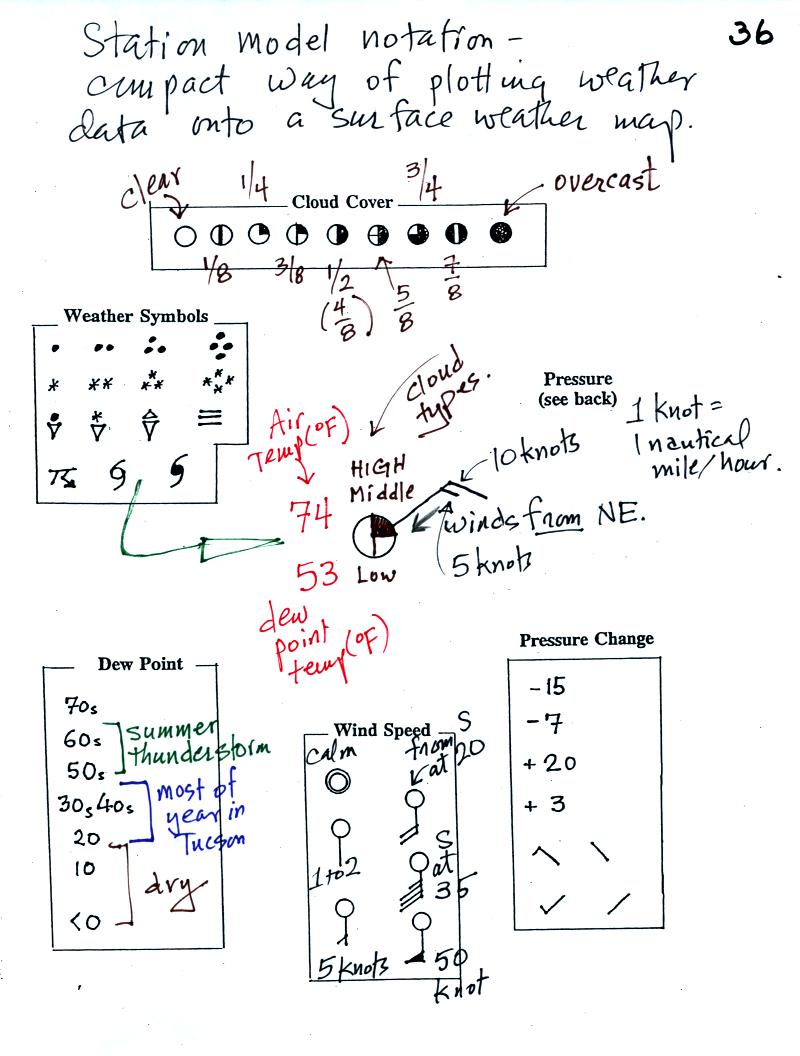 36
Station model notation -
compact way of plotting weather
data onto a surface weather map.
clear
1/4
3/4
overcast
Cloud Cover
1/8
3/8
1/2
(4/8)
5/8
7/8
Weather Symbols
cloud
types.
Pressure
(see back)
1 knot =
1 nautical
mile/hour.
Air
Temp (°F)
HIGH
Middle
10 knots
74
winds from NE.
53
Low
5 knots
dew
point
temp (°F)
Dew Point
70s
60s
50s
30s 40s
20
10
<0
summer
thunderstorm
most of
year in
Tucson
dry
Wind Speed
calm
from
S
at 20
1 to 2
S
at
35
5 knots
50
knot
Pressure Change
-15
-7
+ 20
+ 3